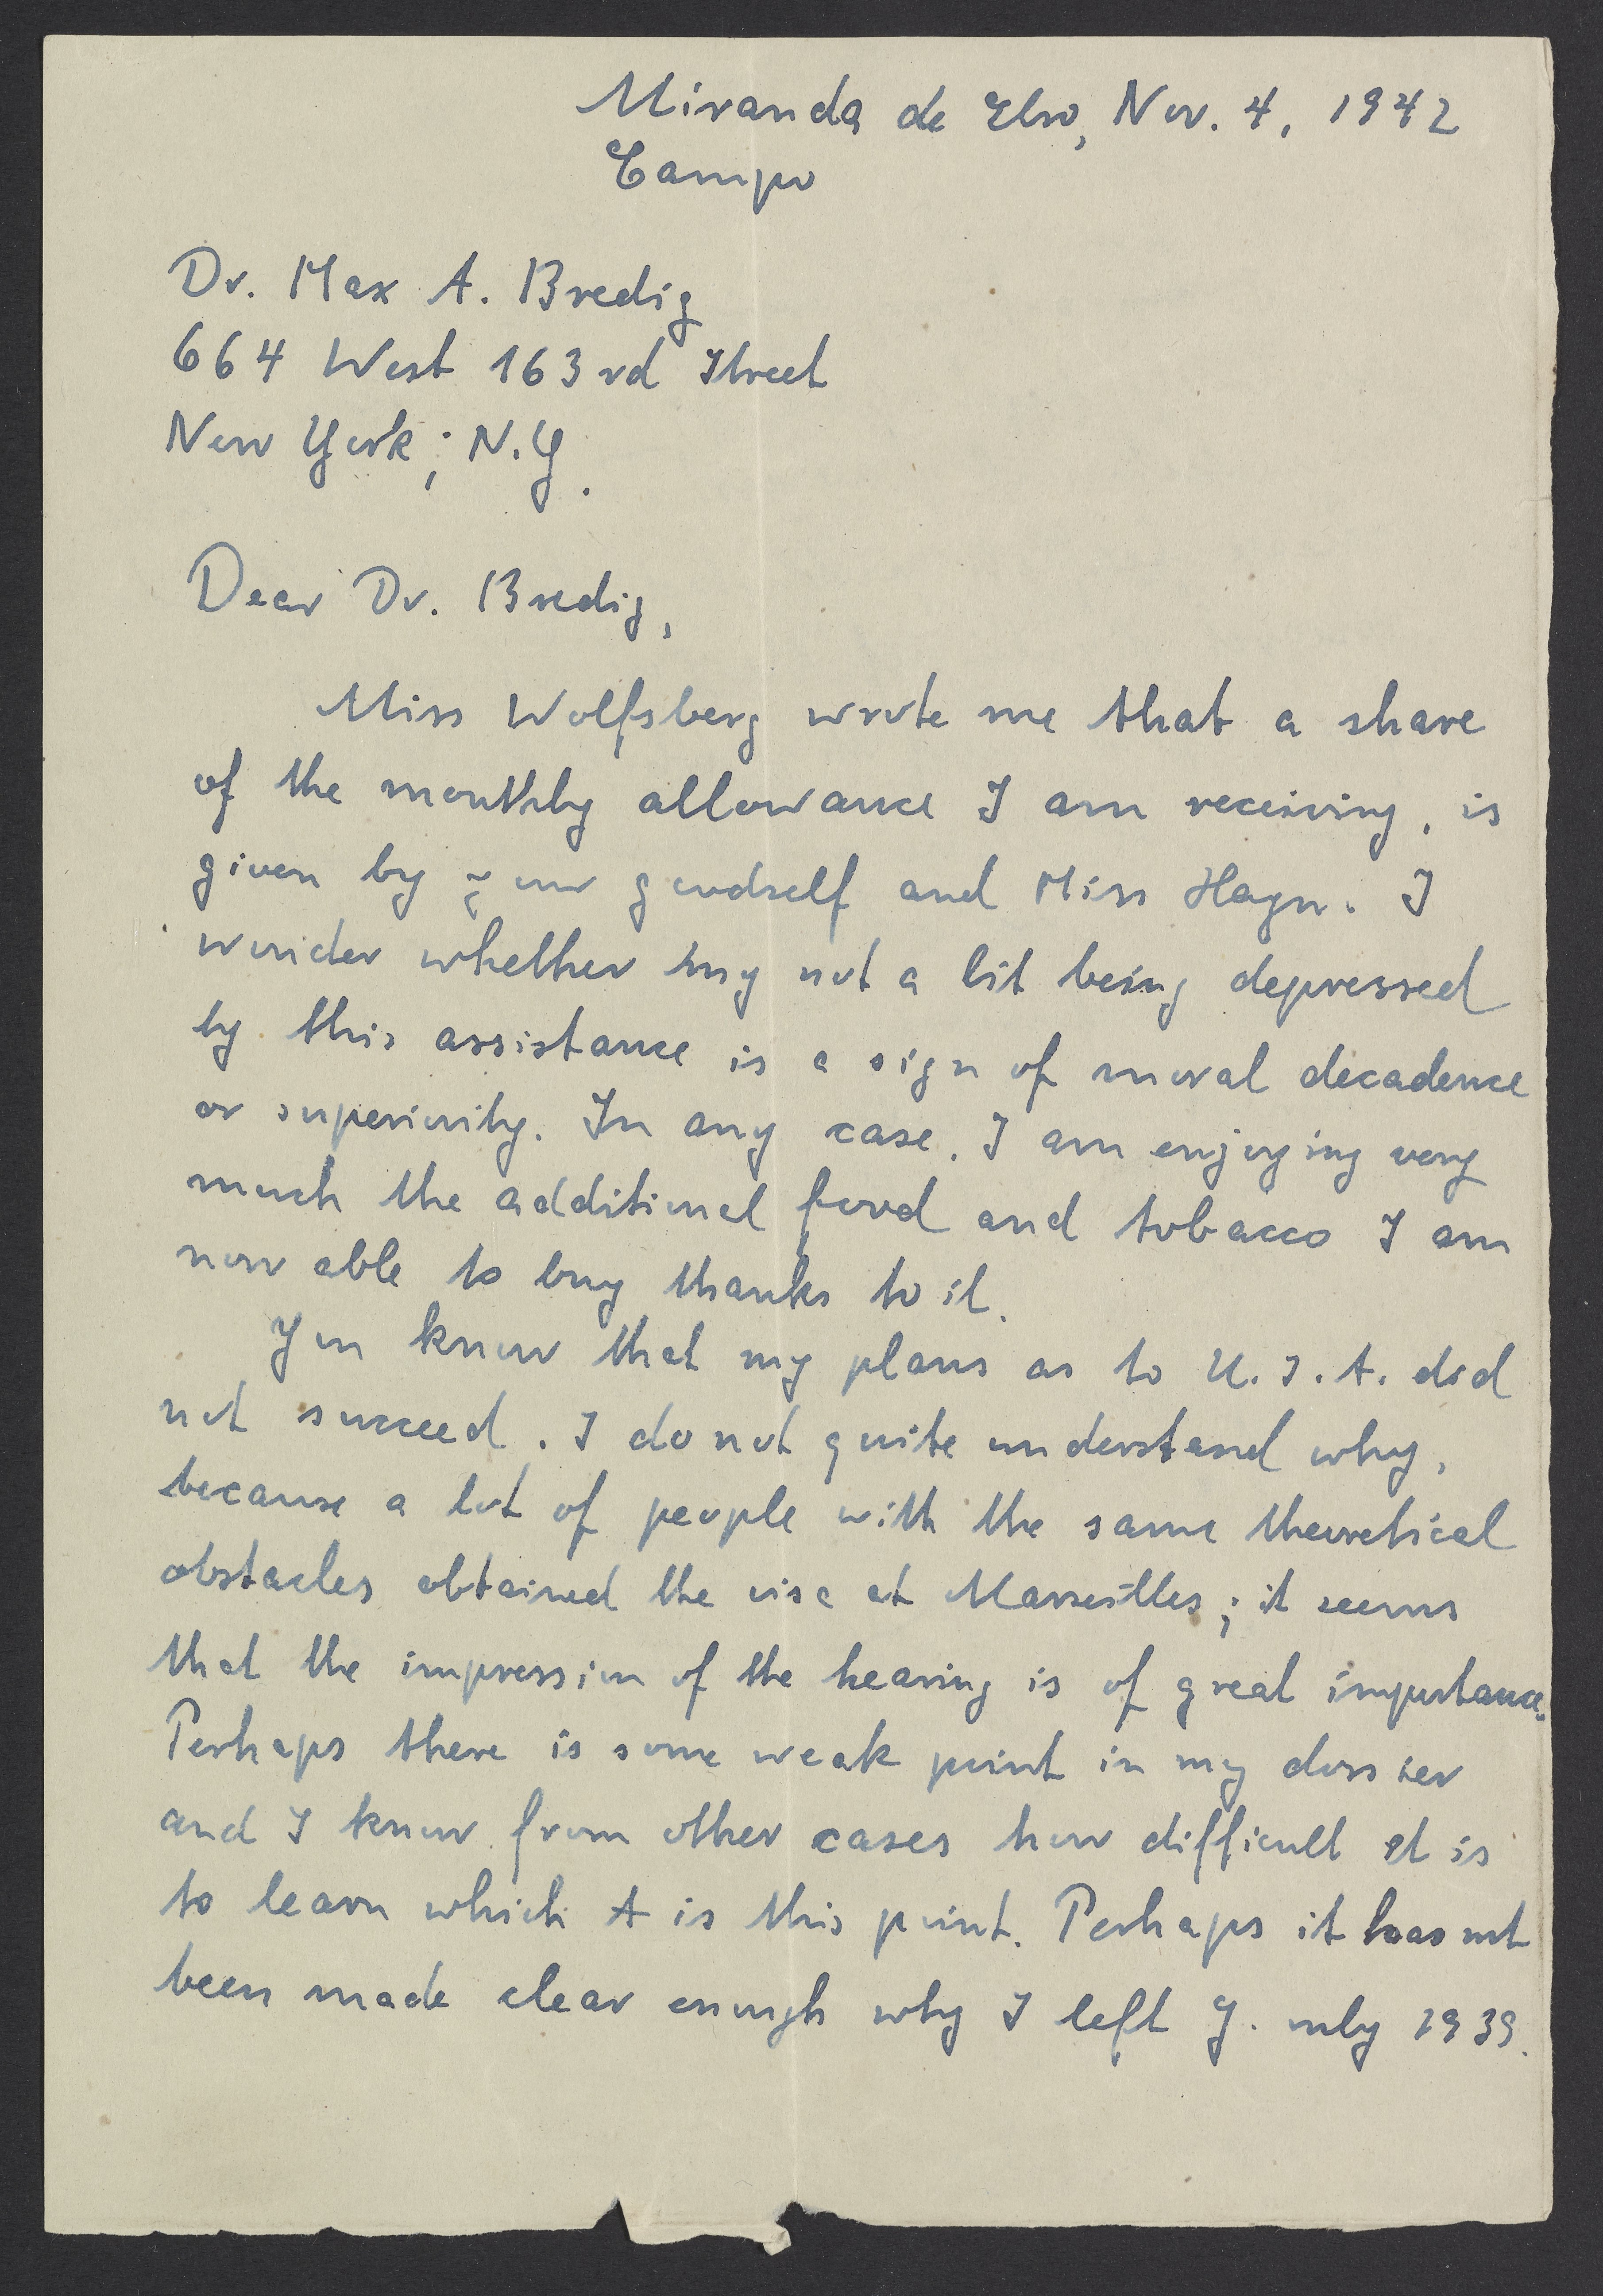 Miranda de Ebro, Nov. 4, 1942
Campo
Dr. Max A. Bredig
664 West 163rd Street
New York, N.Y.
Dear Dr. Bredig,
Miss Wolfsberg wrote me that a share
of the monthly allowance I am receiving, is
given by your goodself and Miss Hagn. I
wonder whether my not a bit being depressed
by this assistance is a sign of moral decadence
or superiority. In any case, I am enjoying very
much the additional food and tobacco I am
now able to buy thanks to it.
You know that my plans as to U.S.A. did
not succeed. I do not quite understand why,
because a lot of people with the same theoretical
obstacles obtained the visa at Marseilles; it seems
that the impression of the hearing is of great importance.
Perhaps there is some weak point in my dossier
and I know from other cases how difficult it is
to learn which is this point. Perhaps it has not
been made clear enough why I left G. only 1939.